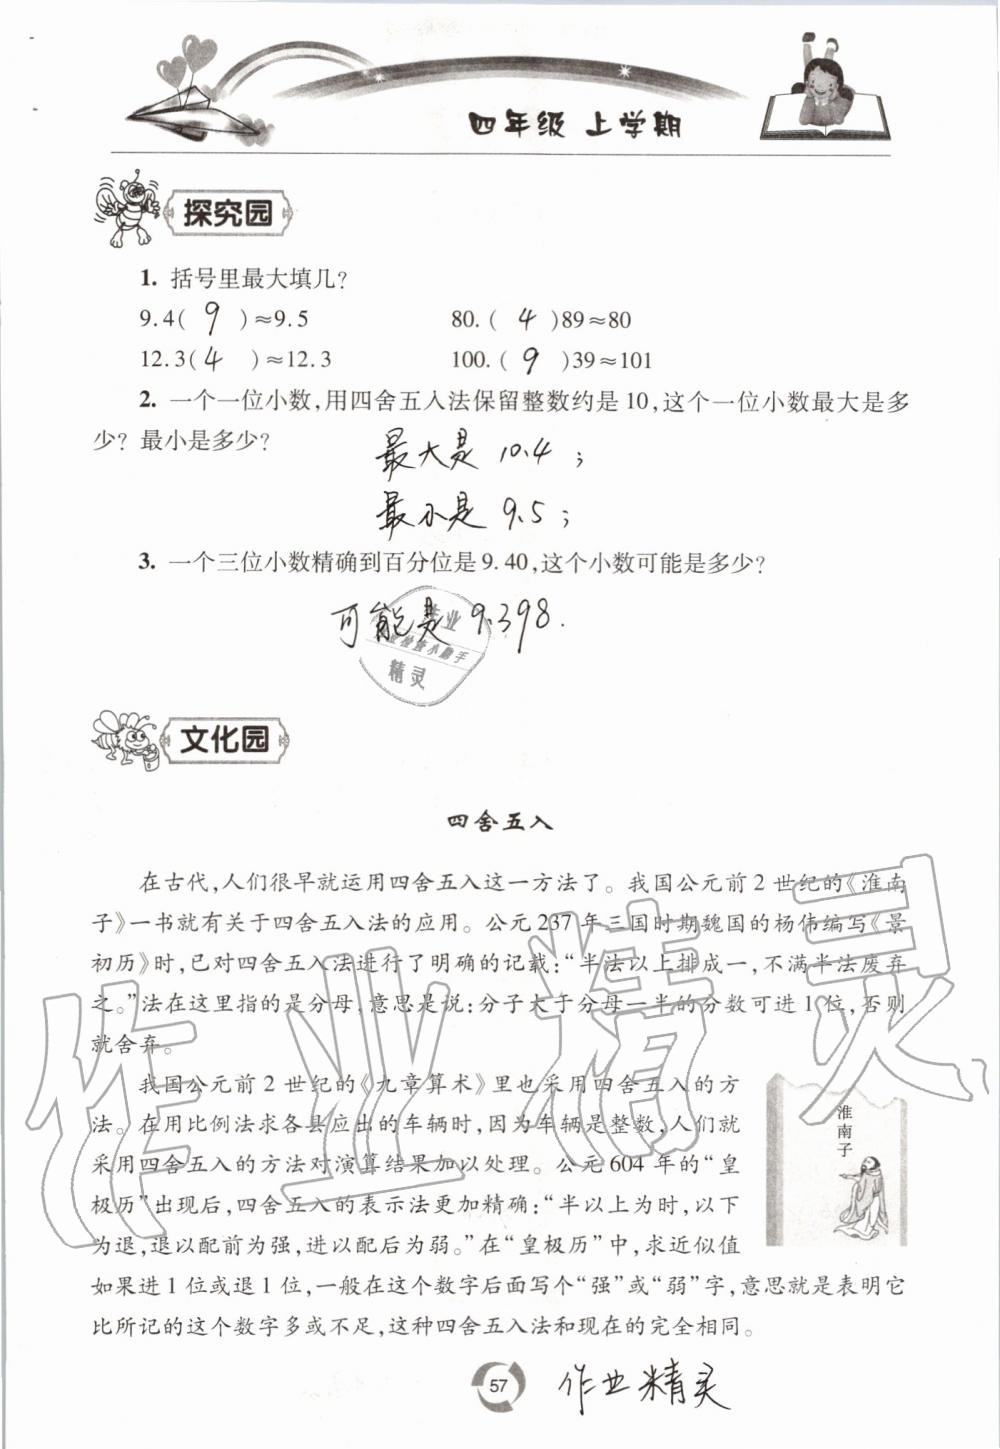 四年级 上学期
探究园
1. 括号里最大填几?
9.4( 9 )≈9.5 80.( 4 )89≈80
12.3( 4 )≈12.3 100.( 9 )39≈101
2. 一个一位小数,用四舍五入法保留整数约是10,这个一位小数最大是多
少? 最小是多少?
最大是 10.4 ;
最小是 9.5 ;
3. 一个三位小数精确到百分位是9.40,这个小数可能是多少?
可能是 9.398.
作业
业检查小助手
精灵
文化园
四舍五入
在古代,人们很早就运用四舍五入这一方法了。我国公元前2世纪的《淮南
子》一书就有关于四舍五入法的应用。公元237年三国时期魏国的杨伟编写《景
初历》时,已对四舍五入法进行了明确的记载:“半法以上排成一,不满半法废弃
之。”法在这里指的是分母,意思是说:分子大于分母一半的分数可进1位,否则
就舍弃。
我国公元前2世纪的《九章算术》里也采用四舍五入的方
法。在用比例法求各县应出的车辆时,因为车辆是整数,人们就
采用四舍五入的方法对演算结果加以处理。公元604年的“皇
极历”出现后,四舍五入的表示法更加精确:“半以上为时,以下
为退,退以配前为强,进以配后为弱。”在“皇极历”中,求近似值
如果进1位或退1位,一般在这个数字后面写个“强”或“弱”字,意思就是表明它
比所记的这个数字多或不足,这种四舍五入法和现在的完全相同。
淮南子
作业精灵
57
作业精灵